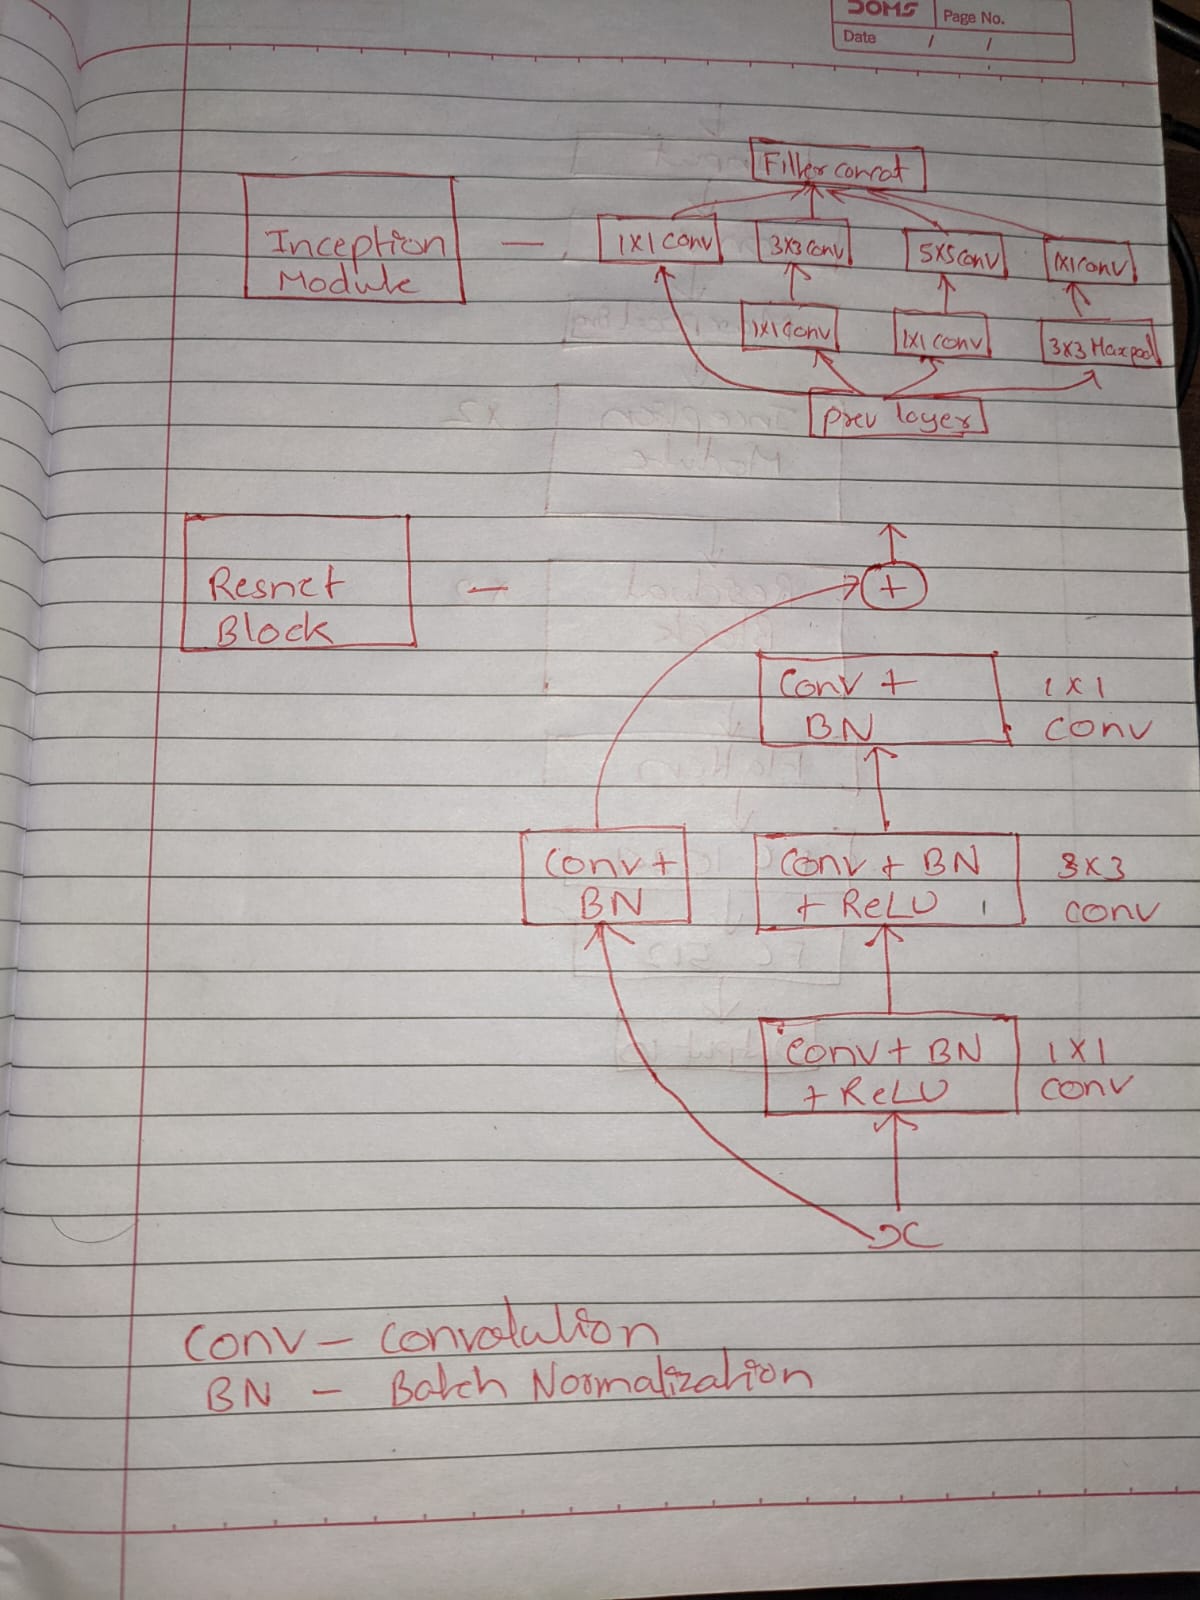 DOMS
Page No.
Date / /
Filter concat
Inception
Module
—
1x1 conv
3x3 conv
5x5 conv
1x1 conv
1x1 conv
1x1 conv
3x3 Maxpool
prev layer
Resnet
Block
—
+
Conv +
BN
1 x 1
conv
Conv +
BN
Conv + BN
+ ReLU
3x3
conv
Conv + BN
+ ReLU
1 x 1
conv
x
Conv – Convolution
BN – Batch Normalization